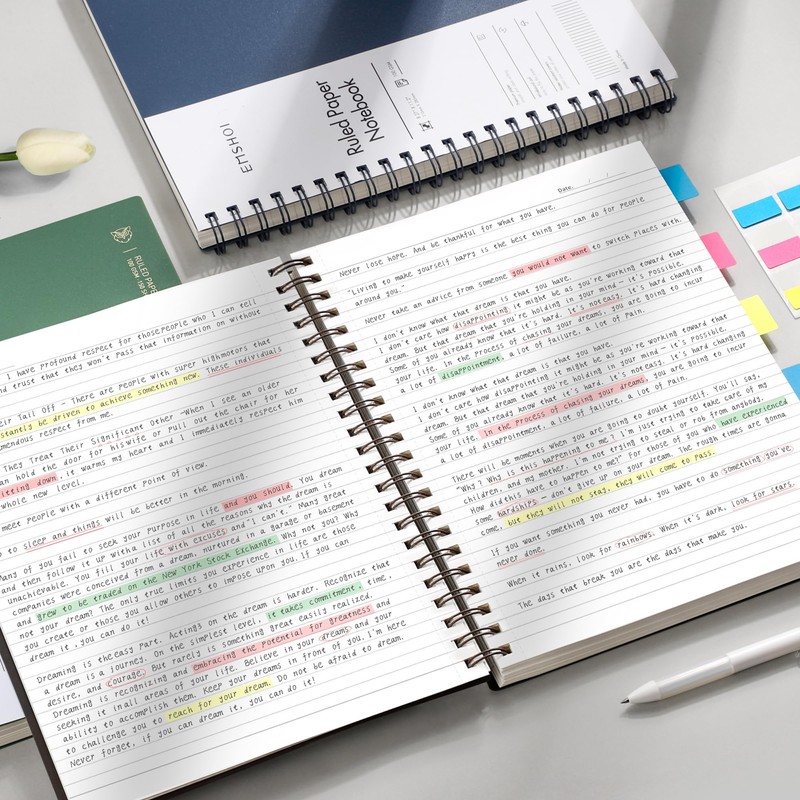 EMSHOI
Ruled Paper
Notebook
RULED PAPER
Date:
I have profound respect for those people who I can tell
nd trust that they won't pass that information on without
eir Tail Off - There are people with super high motors that
stantly be driven to achieve something new. These individuals
mendous respect from me.
They Treat Their Significant Other - When I see an older
an hold the door for his wife or pull out the chair for her
it warms my heart and I immediately respect him
itting down,
whole new level.
meet people with a different point of view.
o to sleep and things will be better in the morning.
Many of you fail to seek your purpose in life and you should. You dream
and then follow it up with a list of all the reasons why the dream is
unachievable. You fill your life with excuses and "I can't." Many great
companies were conceived from a dream, nurtured in a garage or basement
and grew to be traded on the New York Stock Exchange. Why not you? Why
not your dream? The only true limits you experience in life are those
you create or those you allow others to impose upon you. If you can
dream it, you can do it!
Dreaming is the easy part. Acting3 on the dream is harder. Recognize that
a dream is a journey. On the simplest level, it takes commitment, time,
desire, and courage. But rarely is something great easily realized.
Dreaming is recognizing and embracing the potential for greatness and
seeking it in all areas of your life. Believe in your dreams and your
ability to accomplish them. Keep your dreams in front of you. I'm here
to challenge you to reach for your dream. Do not be afraid to dream.
Never forget, if you can dream it, you can do it!
Never lose hope. And be thankful for what you have.
"Living to make yourself happy is the best thing you can do for people
around you."
Never take an advice from someone you would not want to switch places with.
I don't know what that dream is that you have.
I don't care how disappointing it might be as you're working toward that
dream. But that dream that you're holding in your mind — it's possible.
Some of you already know that it's hard. It's not easy. It's hard changing
your life. In the process of chasing your dreams, you are going to incur
a lot of disappointment, a lot of failure, a lot of pain.
I don't know what that dream is that you have.
I don't care how disappointing it might be as you're working toward that
dream. But that dream that you're holding in your mind — it's possible.
Some of you already know that it's hard. It's not easy. It's hard changing
your life. In the process of chasing your dreams, you are going to incur
a lot of disappointment, a lot of failure, a lot of pain.
There will be moments when you are going to doubt yourself. You'll say,
"Why? Why is this happening to me? I'm just trying to take care of my
children, and my mother. I'm not trying to steal or rob from anybody.
How did this have to happen to me?" For those of you who have experienced
some hardships: don't give up on your dream. The rough times are gonna
come, but they will not stay, they will come to pass.
If you want something you never had, you have to do something you've
never done.
When it rains, look for rainbows. When it's dark, look for stars.
The days that break you are the days that make you.